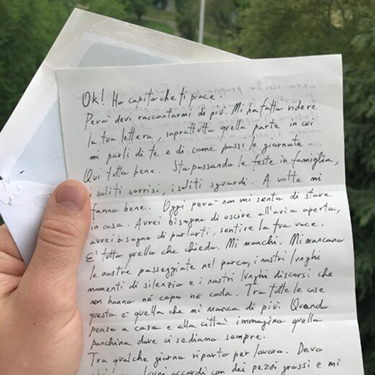 Ok! Ho capito che ti piace.
Però devi raccontarmi di più. Mi ha fatto ridere
la tua lettera, soprattutto quella parte in cui
mi parli di te e di come passi le giornate.
Qui tutto bene. Sto passando le feste in famiglia,
i soliti sorrisi, i soliti sguardi. A volte mi
fanno bene. Oggi però non mi sento di stare
in casa. Avrei bisogno di uscire all'aria aperta,
avrei bisogno di parlarti, sentire la tua voce.
E' tutto quello che chiedo. Mi manchi. Mi mancano
le nostre passeggiate nel parco, i nostri lunghi
momenti di silenzio e i nostri lunghi discorsi che
non hanno né capo né coda. Tra tutte le cose
questa è quella che mi manca di più. Quando
penso a casa e alla città immagino quella
panchina dove ci sediamo sempre.
Tra qualche giorno riparto per lavoro. Devo
accordi con dei pezzi grossi e mi